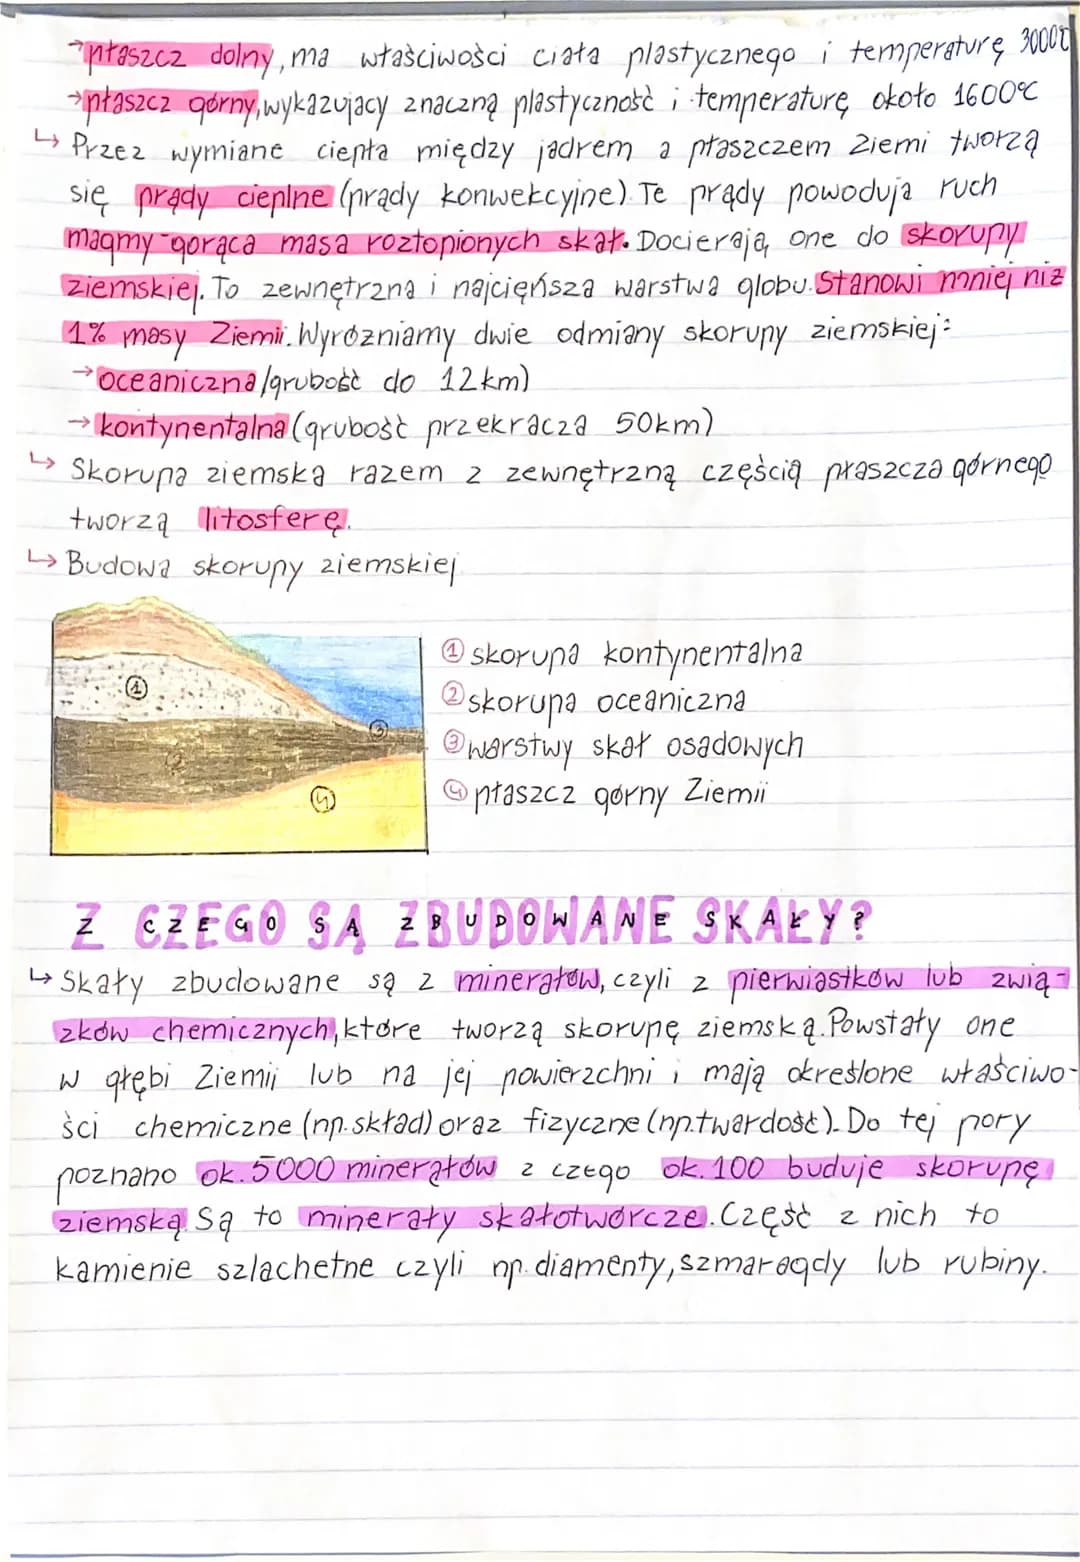 →płaszcz dolny, ma właściwości ciała plastycznego i temperaturę 3000℃
→płaszcz górny, wykazujący znaczną plastyczność i temperaturę około 1600℃
↳ Przez wymiane ciepła między jądrem a płaszczem Ziemi tworzą
się prądy cieplne (prądy konwekcyjne). Te prądy powodują ruch
magmy-gorąca masa roztopionych skał. Docierają one do skorupy
ziemskiej. To zewnętrzna i najcieńsza warstwa globu. Stanowi mniej niż
1% masy Ziemii. Wyróżniamy dwie odmiany skorupy ziemskiej:
→oceaniczna (grubość do 12km)
→kontynentalna (grubość przekracza 50km)
↳ Skorupa ziemska razem z zewnętrzną częścią płaszcza górnego
tworzą litosferę.
↳ Budowa skorupy ziemskiej
① skorupa kontynentalna
② skorupa oceaniczna
③ warstwy skał osadowych
④ płaszcz górny Ziemii
①
③
②
④
Z CZEGO SĄ ZBUDOWANE SKAŁY?
↳ Skały zbudowane są z minerałów, czyli z pierwiastków lub zwią-
zków chemicznych, które tworzą skorupę ziemską. Powstały one
w głębi Ziemii lub na jej powierzchni i mają określone właściwo-
ści chemiczne (np. skład) oraz fizyczne (np. twardość). Do tej pory
poznano ok. 5000 minerałów z czego ok. 100 buduje skorupę
ziemską. Są to minerały skałotwórcze. Część z nich to
kamienie szlachetne czyli np. diamenty, szmaragdy lub rubiny.